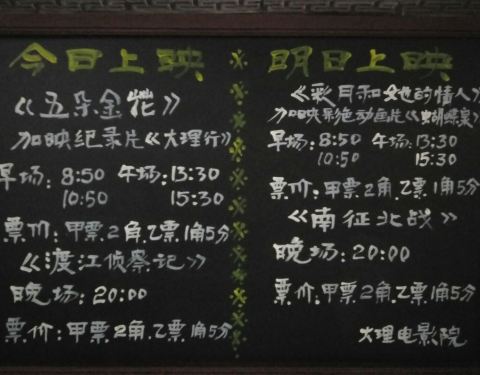 今日上映
《五朵金花》
加映纪录片《大理行》
早场：8:50 午场：13:30
10:50 15:30
票价：甲票2角.乙票1角5分
《渡江侦察记》
晚场：20:00
票价：甲票2角.乙票1角5分
明日上映
《彩月和她的情人》
加映彩色动画片《蝴蝶泉》
早场：8:50 午场：13:30
10:50 15:30
票价：甲票2角.乙票1角5分
《南征北战》
晚场：20:00
票价：甲票2角.乙票1角5分
大理电影院